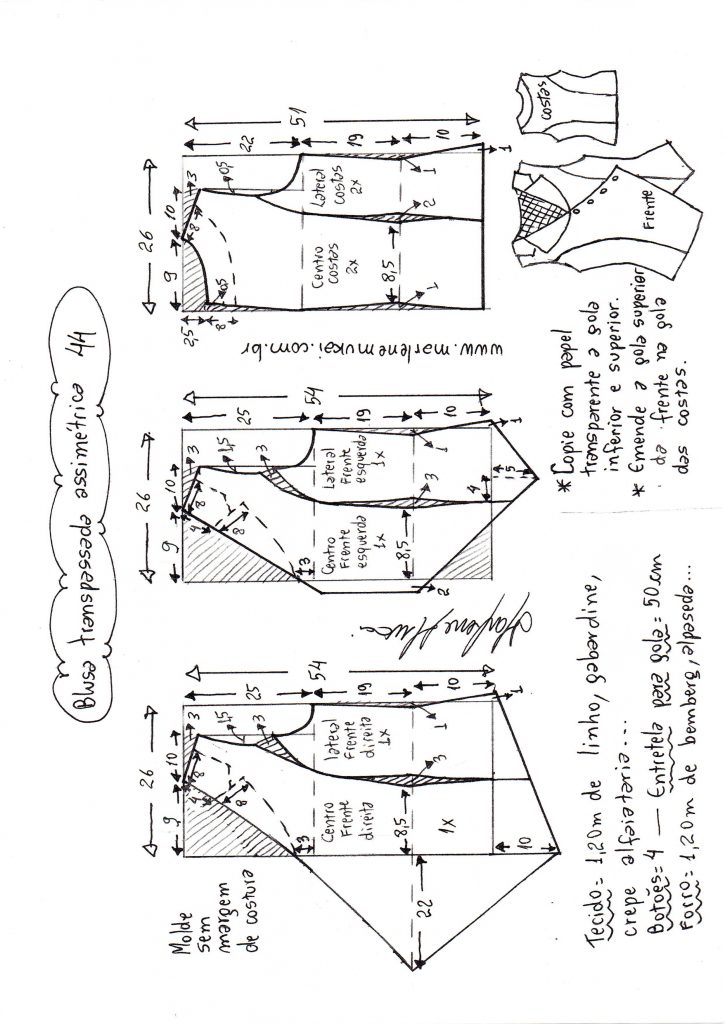 Blusa transpassada assimétrica 44
Molde
sem
margem
de costura
26
9
10
3
8
4
8
1,5
3
25
54
19
10
3
Centro
Frente
direita
1x
lateral
Frente
direita
1x
8,5
3
1
1
22
10
26
9
10
3
8
4
8
1,5
3
25
54
19
10
3
Centro
Frente
esquerda
1x
Lateral
Frente
esquerda
1x
8,5
3
1
1
2
4
15
www.marlenemukai.com.br
26
9
10
3
8
0,5
2,5
8
0,5
22
51
19
10
Centro
costas
2x
Lateral
costas
2x
8,5
1
2
1
1
Tecido = 1,20m de linho, gabardine,
crepe alfaiataria...
Botões = 4 — Entretela para gola = 50cm
Forro = 1,20m de bemberg, alpaseda...
* Copie com papel
transparente a gola
inferior e superior.
* Emende a gola superior
da frente na gola
das costas.
Frente
costas